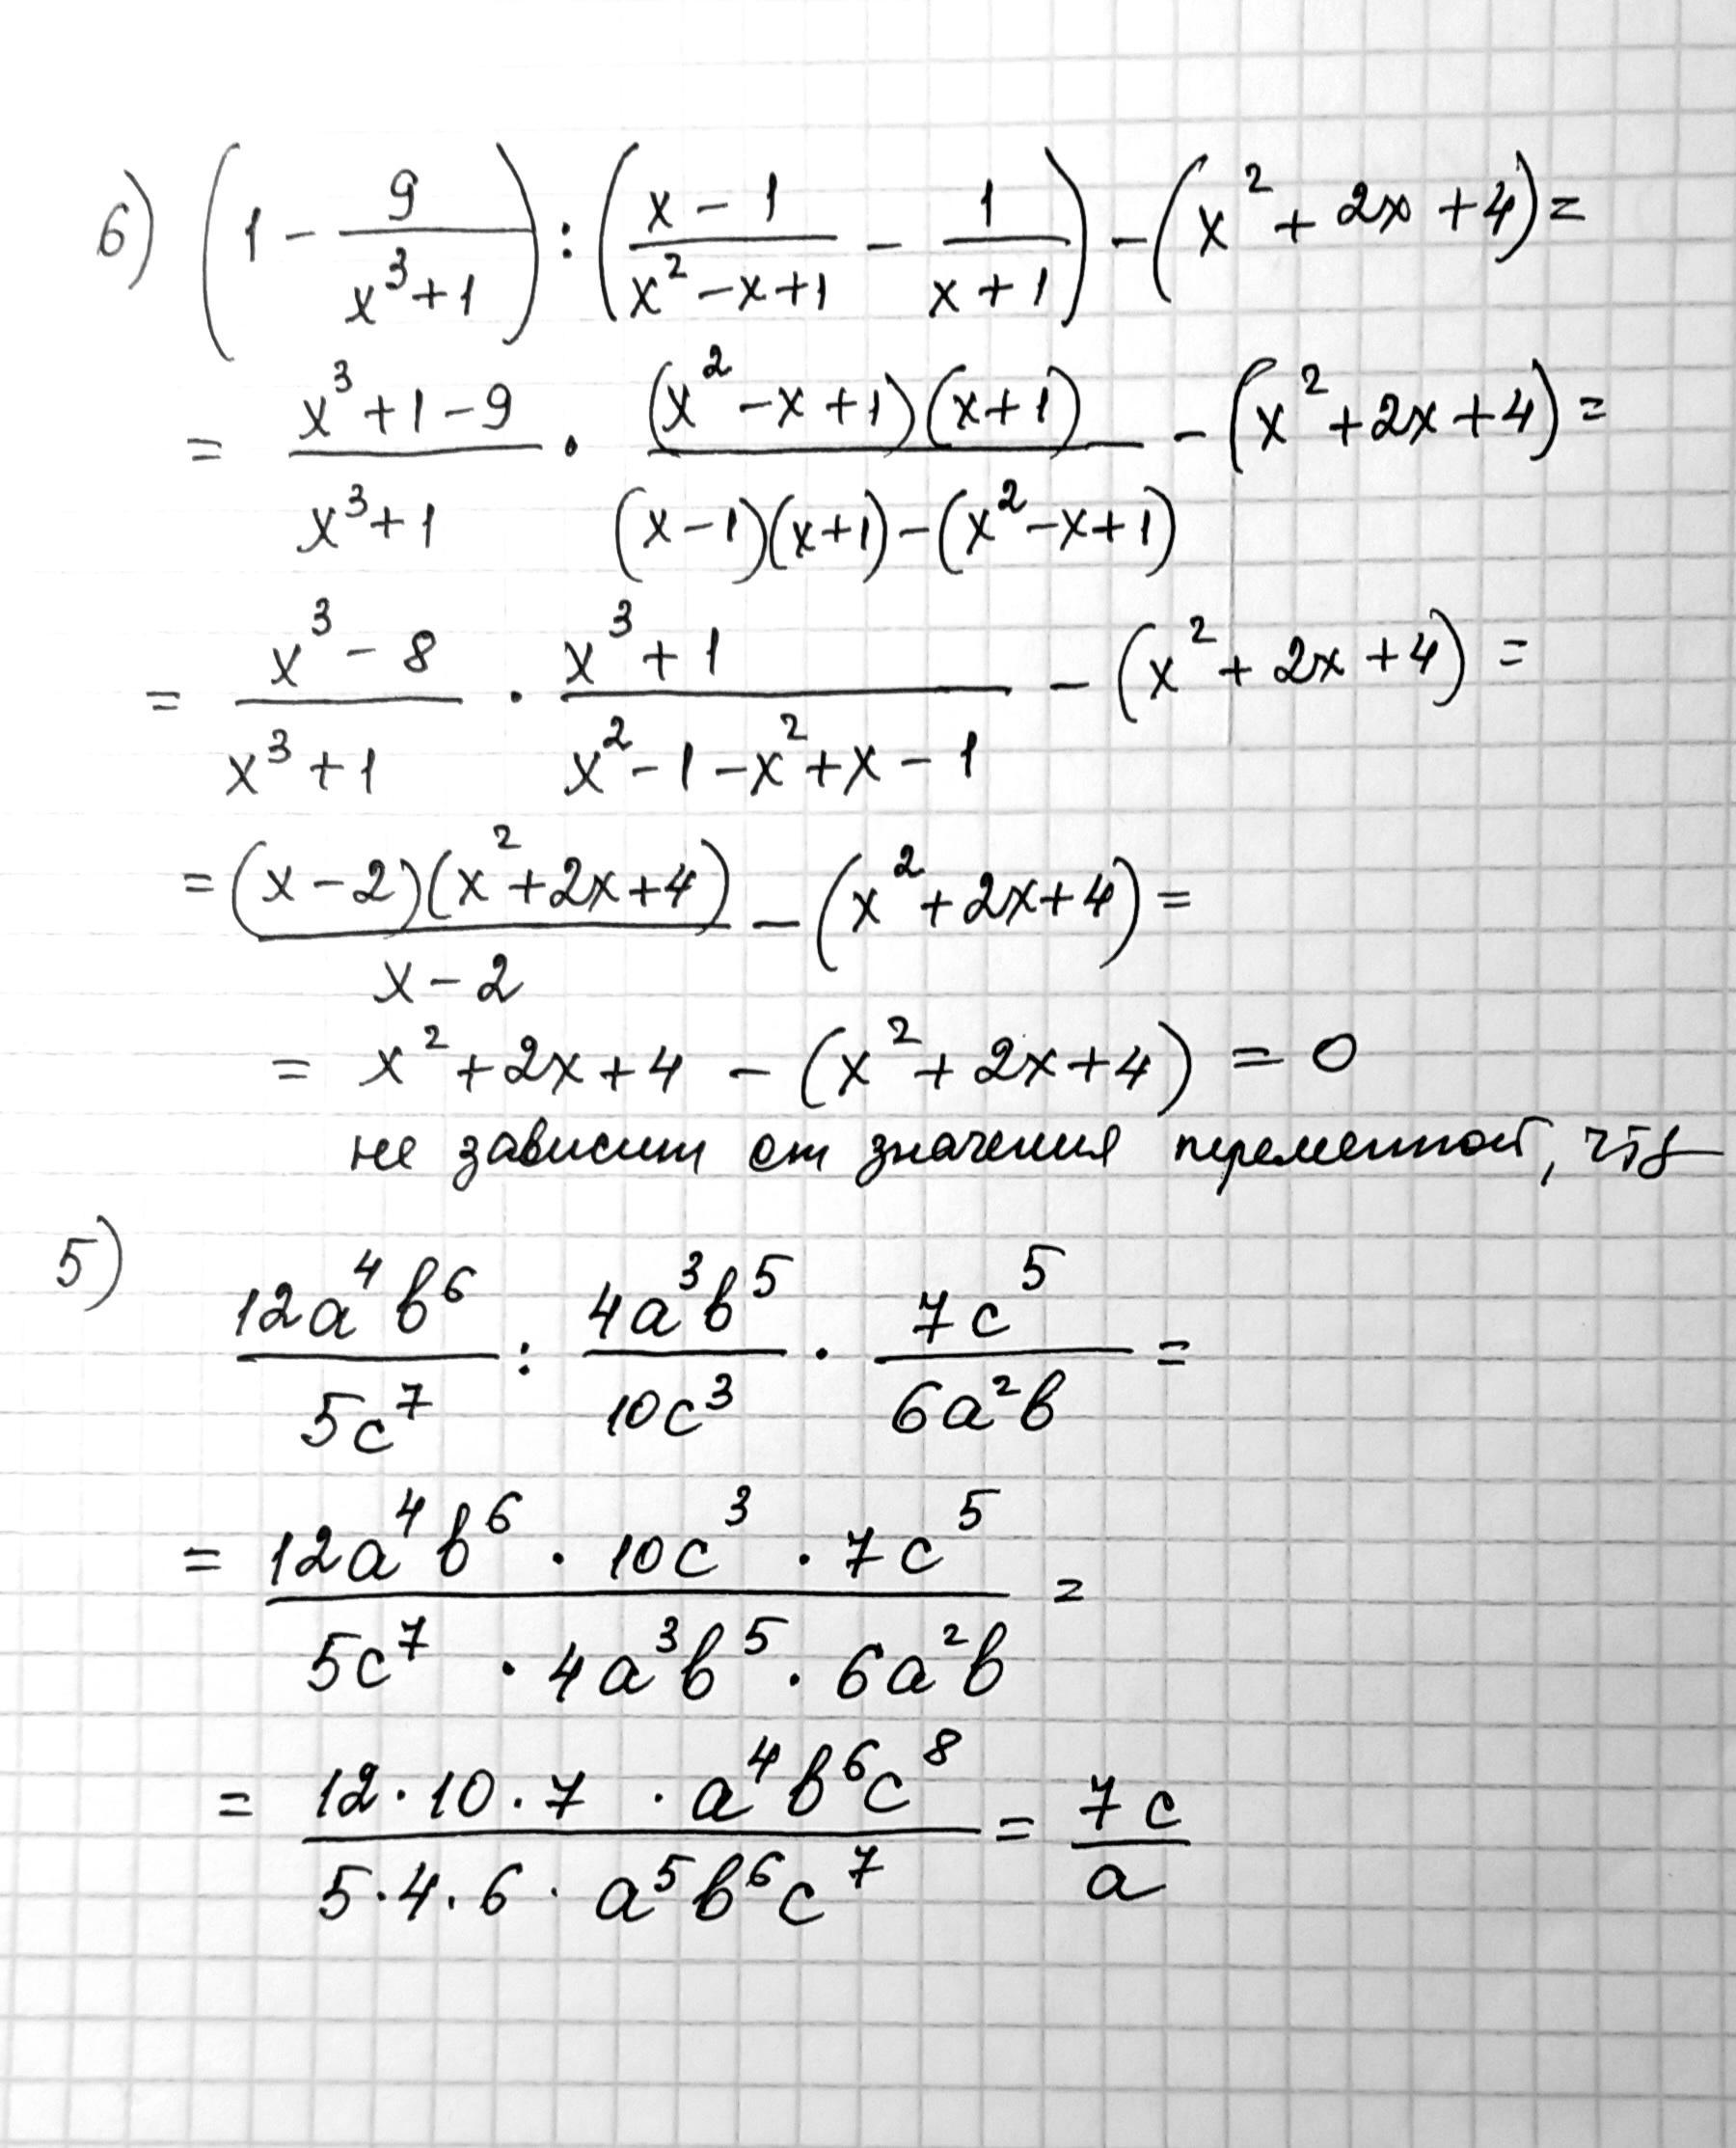 6) (1 - 9/(x³+1)) : ((x-1)/(x²-x+1) - 1/(x+1)) - (x²+2x+4) =
= (x³+1-9)/(x³+1) · ((x²-x+1)(x+1))/((x-1)(x+1)-(x²-x+1)) - (x²+2x+4) =
= (x³-8)/(x³+1) · (x³+1)/(x²-1-x²+x-1) - (x²+2x+4) =
= ((x-2)(x²+2x+4))/(x-2) - (x²+2x+4) =
= x²+2x+4 - (x²+2x+4) = 0
не зависит от значения переменной, чтд
5) 12a⁴b⁶/5c⁷ : 4a³b⁵/10c³ · 7c⁵/6a²b =
= (12a⁴b⁶ · 10c³ · 7c⁵)/(5c⁷ · 4a³b⁵ · 6a²b) =
= (12·10·7 · a⁴b⁶c⁸)/(5·4·6 · a⁵b⁶c⁷) = 7c/a